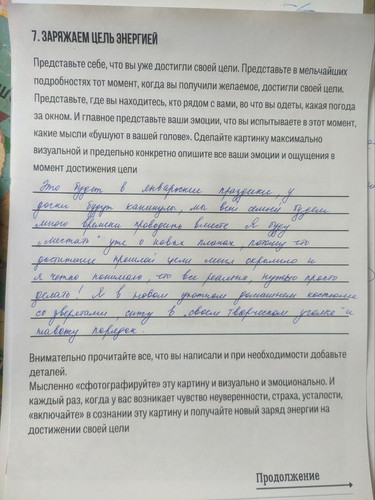 7. ЗАРЯЖАЕМ ЦЕЛЬ ЭНЕРГИЕЙ
Представьте себе, что вы уже достигли своей цели. Представьте в мельчайших
подробностях тот момент, когда вы получили желаемое, достигли своей цели.
Представьте, где вы находитесь, кто рядом с вами, во что вы одеты, какая погода
за окном. И главное представьте ваши эмоции, что вы испытываете в этот момент,
какие мысли «бушуют в вашей голове». Сделайте картинку максимально
визуальной и предельно конкретно опишите все ваши эмоции и ощущения в
момент достижения цели
Это будет в январские праздники, у
дочки будут каникулы, мы всей семьей будем
много времени проводить вместе. Я буду
"мечтать" уже о новых планах, потому что
достижение прошлой цели меня окрылило и
я четко понимаю, что все реально, нужно просто
делать! Я в новом уютном домашнем костюме
со зверятами, сижу в "своем творческом уголке" и
навожу порядок.
Внимательно прочитайте все, что вы написали и при необходимости добавьте
деталей.
Мысленно «сфотографируйте» эту картину и визуально и эмоционально. И
каждый раз, когда у вас возникает чувство неуверенности, страха, усталости,
«включайте» в сознании эту картину и получайте новый заряд энергии на
достижении своей цели
Продолжение